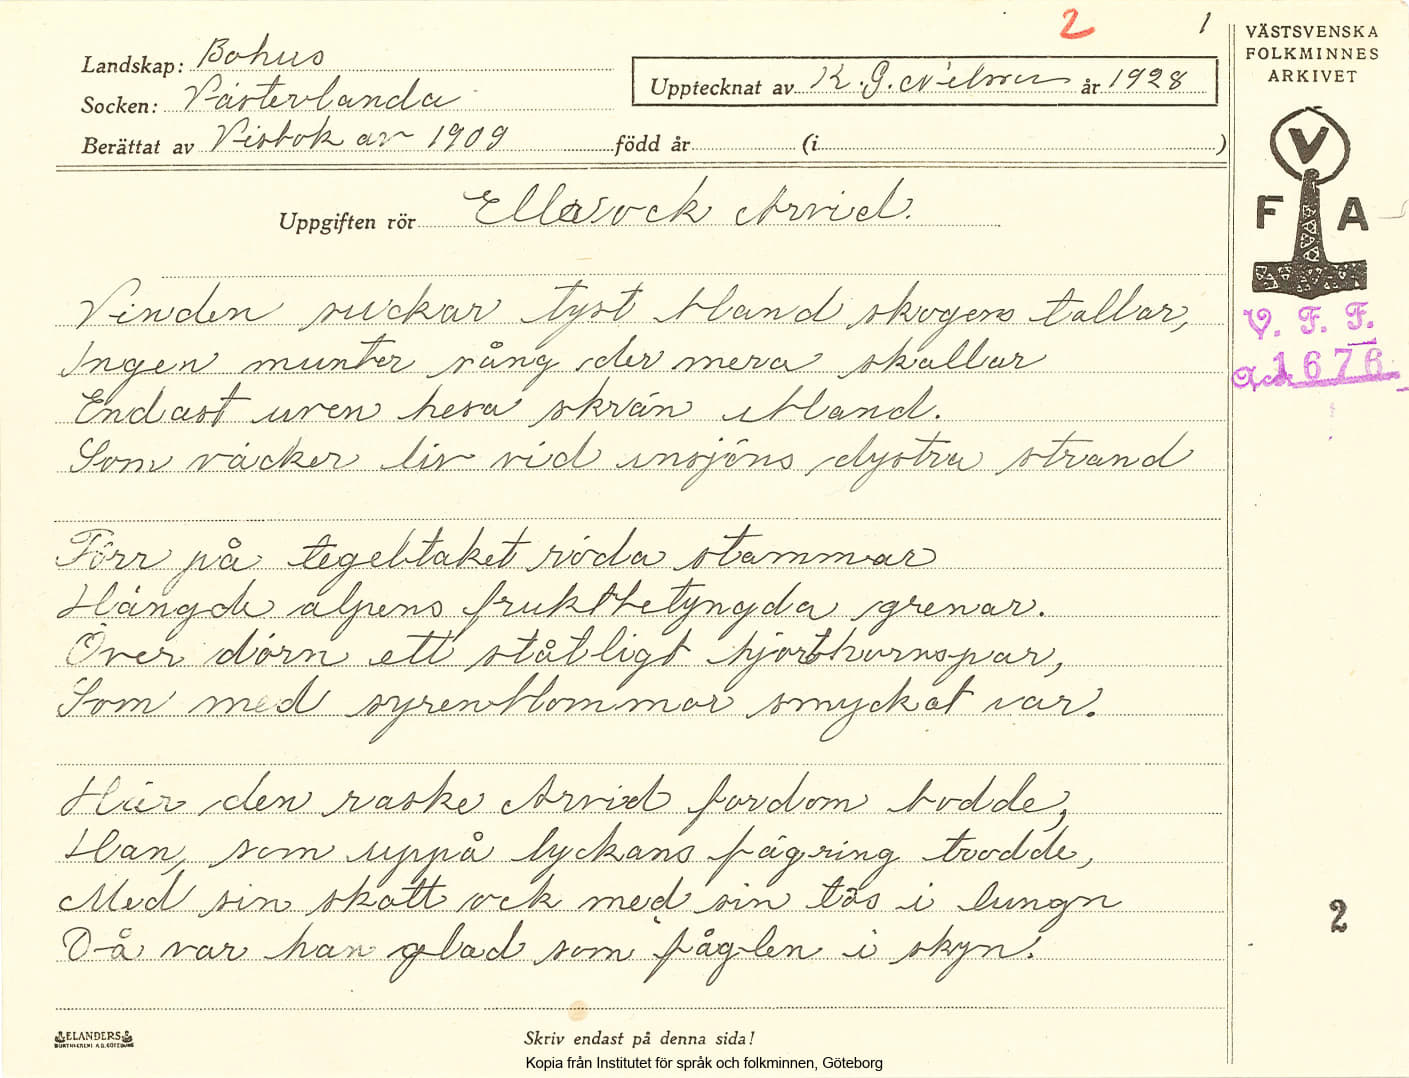 2 1
VÄSTSVENSKA
FOLKMINNES
ARKIVET
Landskap: Bohus
Socken: Västerlanda
Upptecknat av K. G. Nilsson år 1928
Berättat av Visbok av 1909 född år (i )
V
F A
Uppgiften rör Ellen ock Arvid.
V. F. F.
Acc. 1676
Vinden suckar tyst bland skogens tallar,
Ingen munter sång der mera skallar
Endast uven hesa skrän ibland.
Som väcker liv vid insjöns dystra strand
Förr på tegeltaket röda stammar
Hängde alpens fruktbetyngda grenar.
Över dörn ett ståtligt hjorthornspar,
Som med syrenblommor smyckat var.
Här den raske Arvid fordom bodde,
Han, som uppå lyckans fägring trodde,
Med sin skatt ock med sin tös i lungn
Då var han glad som fåglen i skyn.
2
ELANDERS
BOKTRYCKERI A.B. GÖTEBORG
Skriv endast på denna sida!
Kopia från Institutet för språk och folkminnen, Göteborg